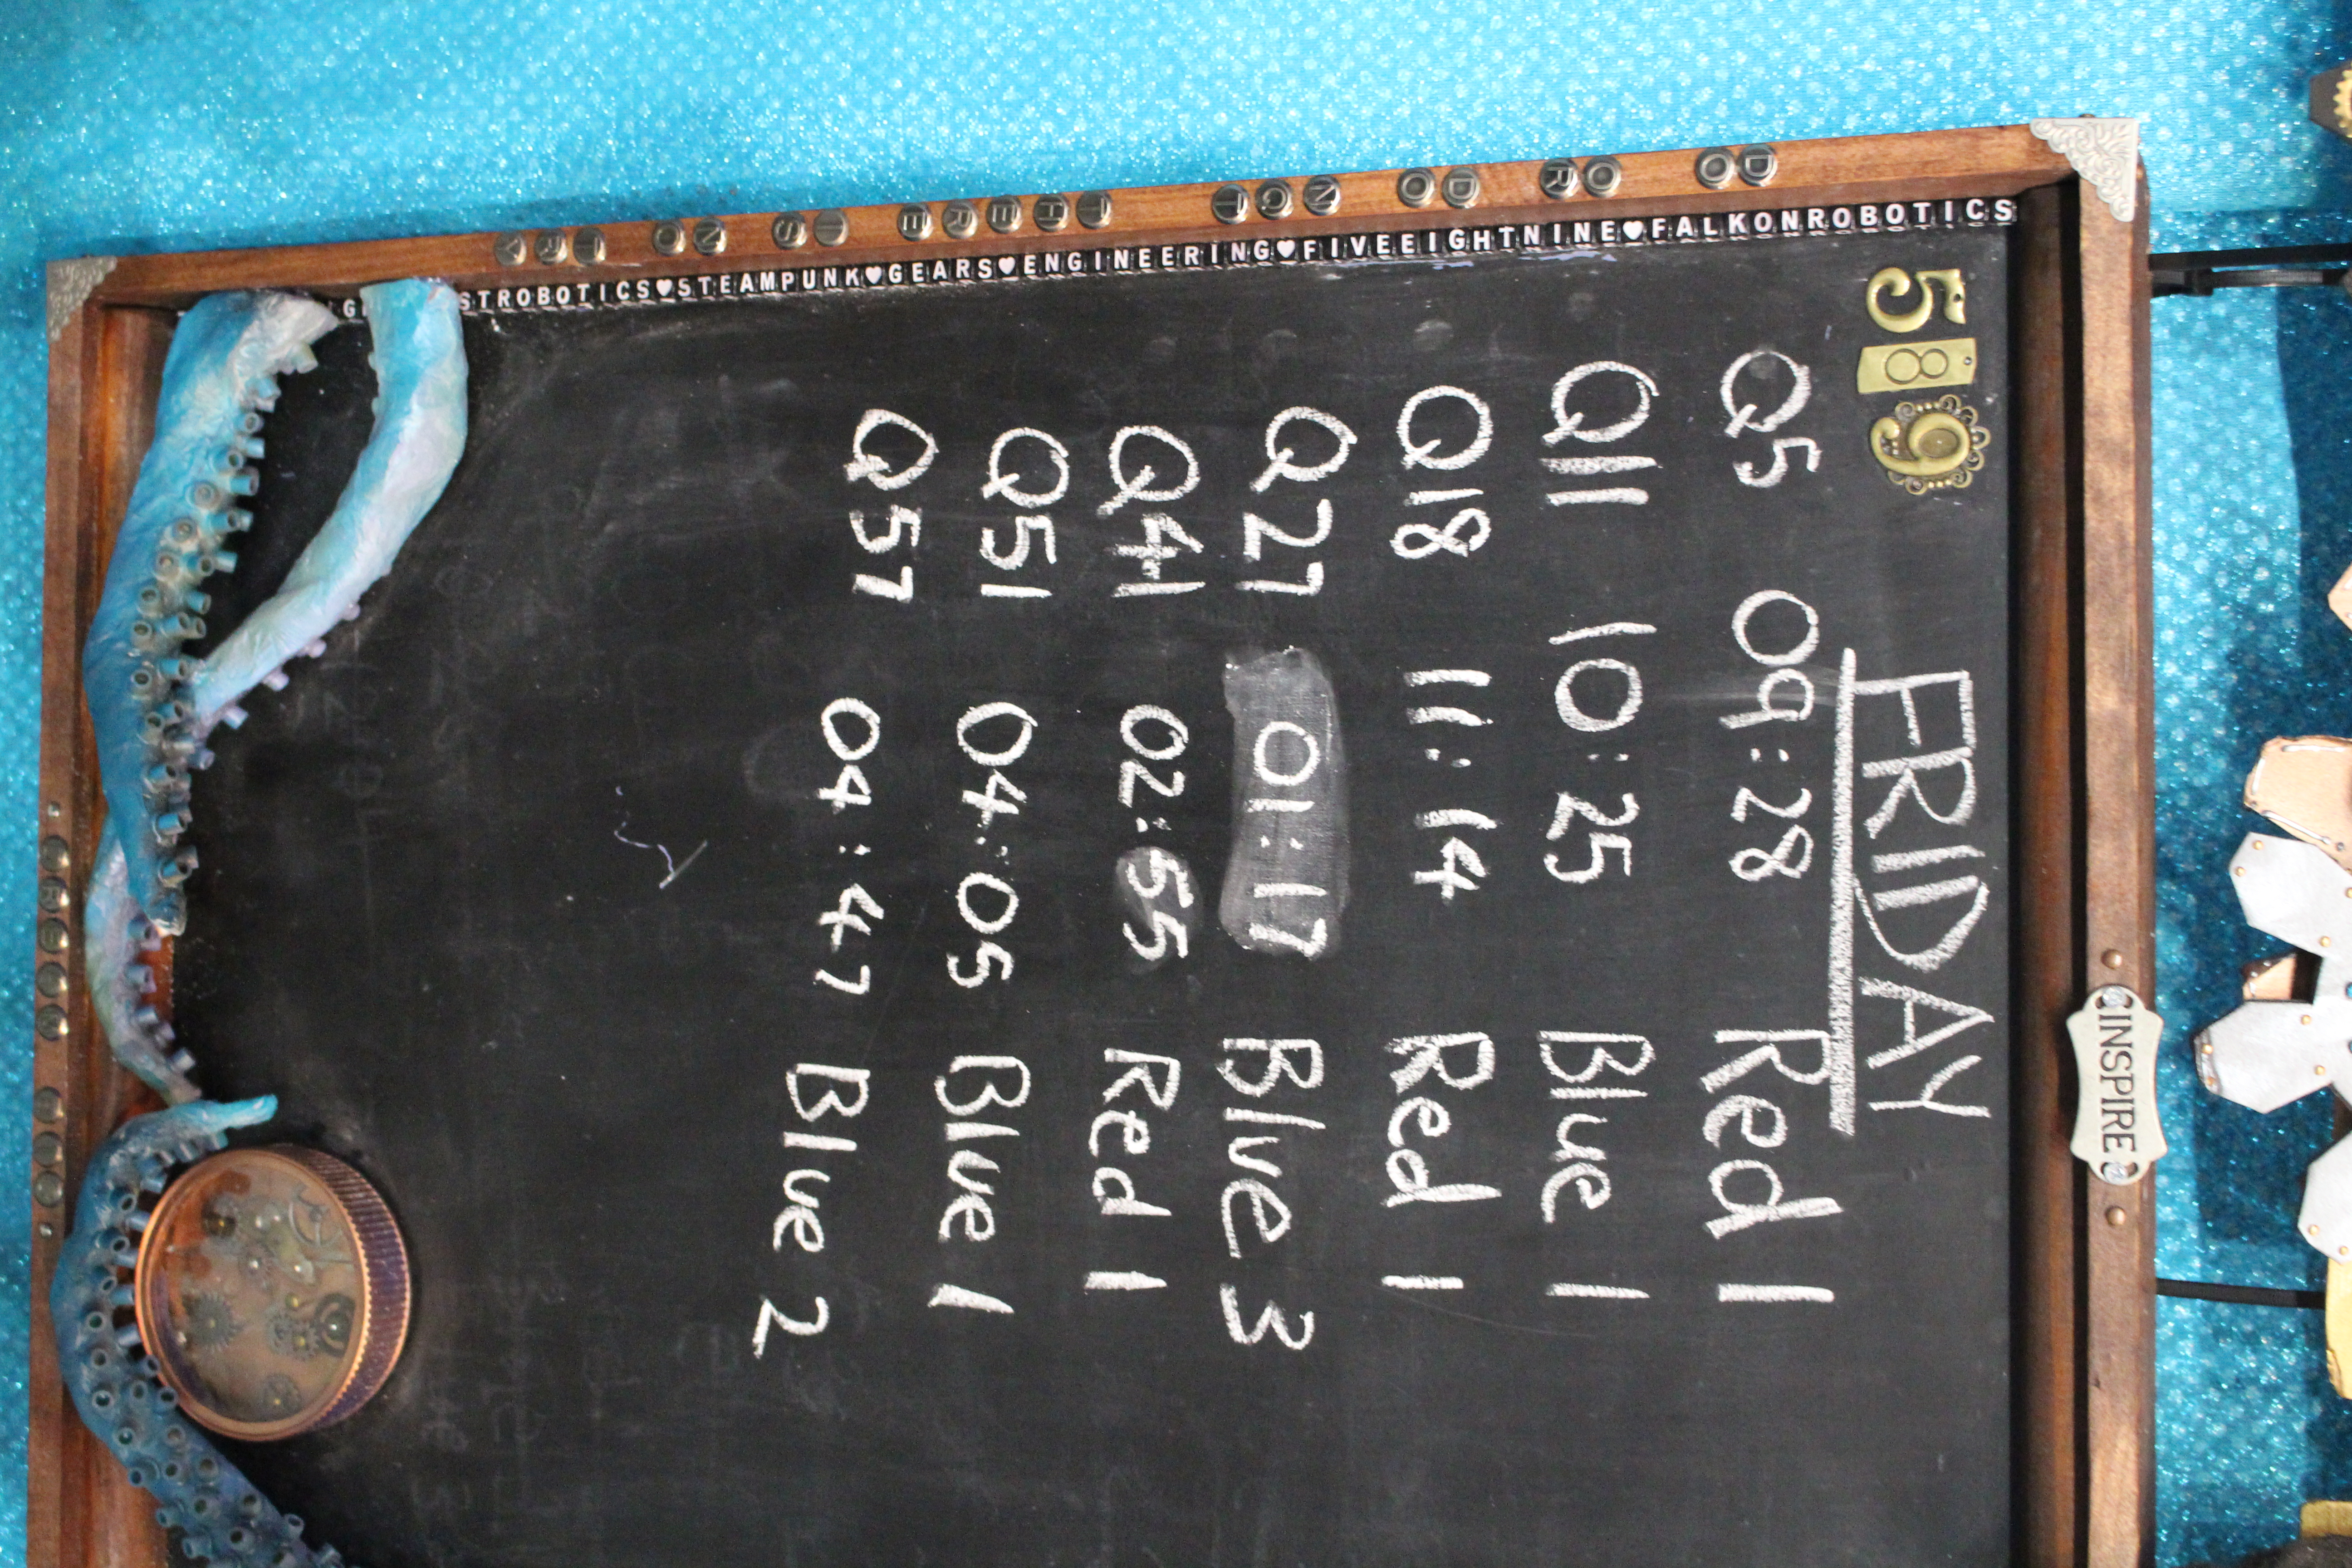 INSPIRE
589
FRIDAY
Q5 09:28 Red 1
Q11 10:25 Blue 1
Q18 11:14 Red 1
Q27 01:17 Blue 3
Q41 02:55 Red 1
Q51 04:05 Blue 1
Q57 04:47 Blue 2
DO OR DO NOT THERE IS NO TRY
STROBOTICS♥STEAMPUNK♥GEARS♥ENGINEERING♥FIVEEIGHTNINE♥FALKONROBOTICS